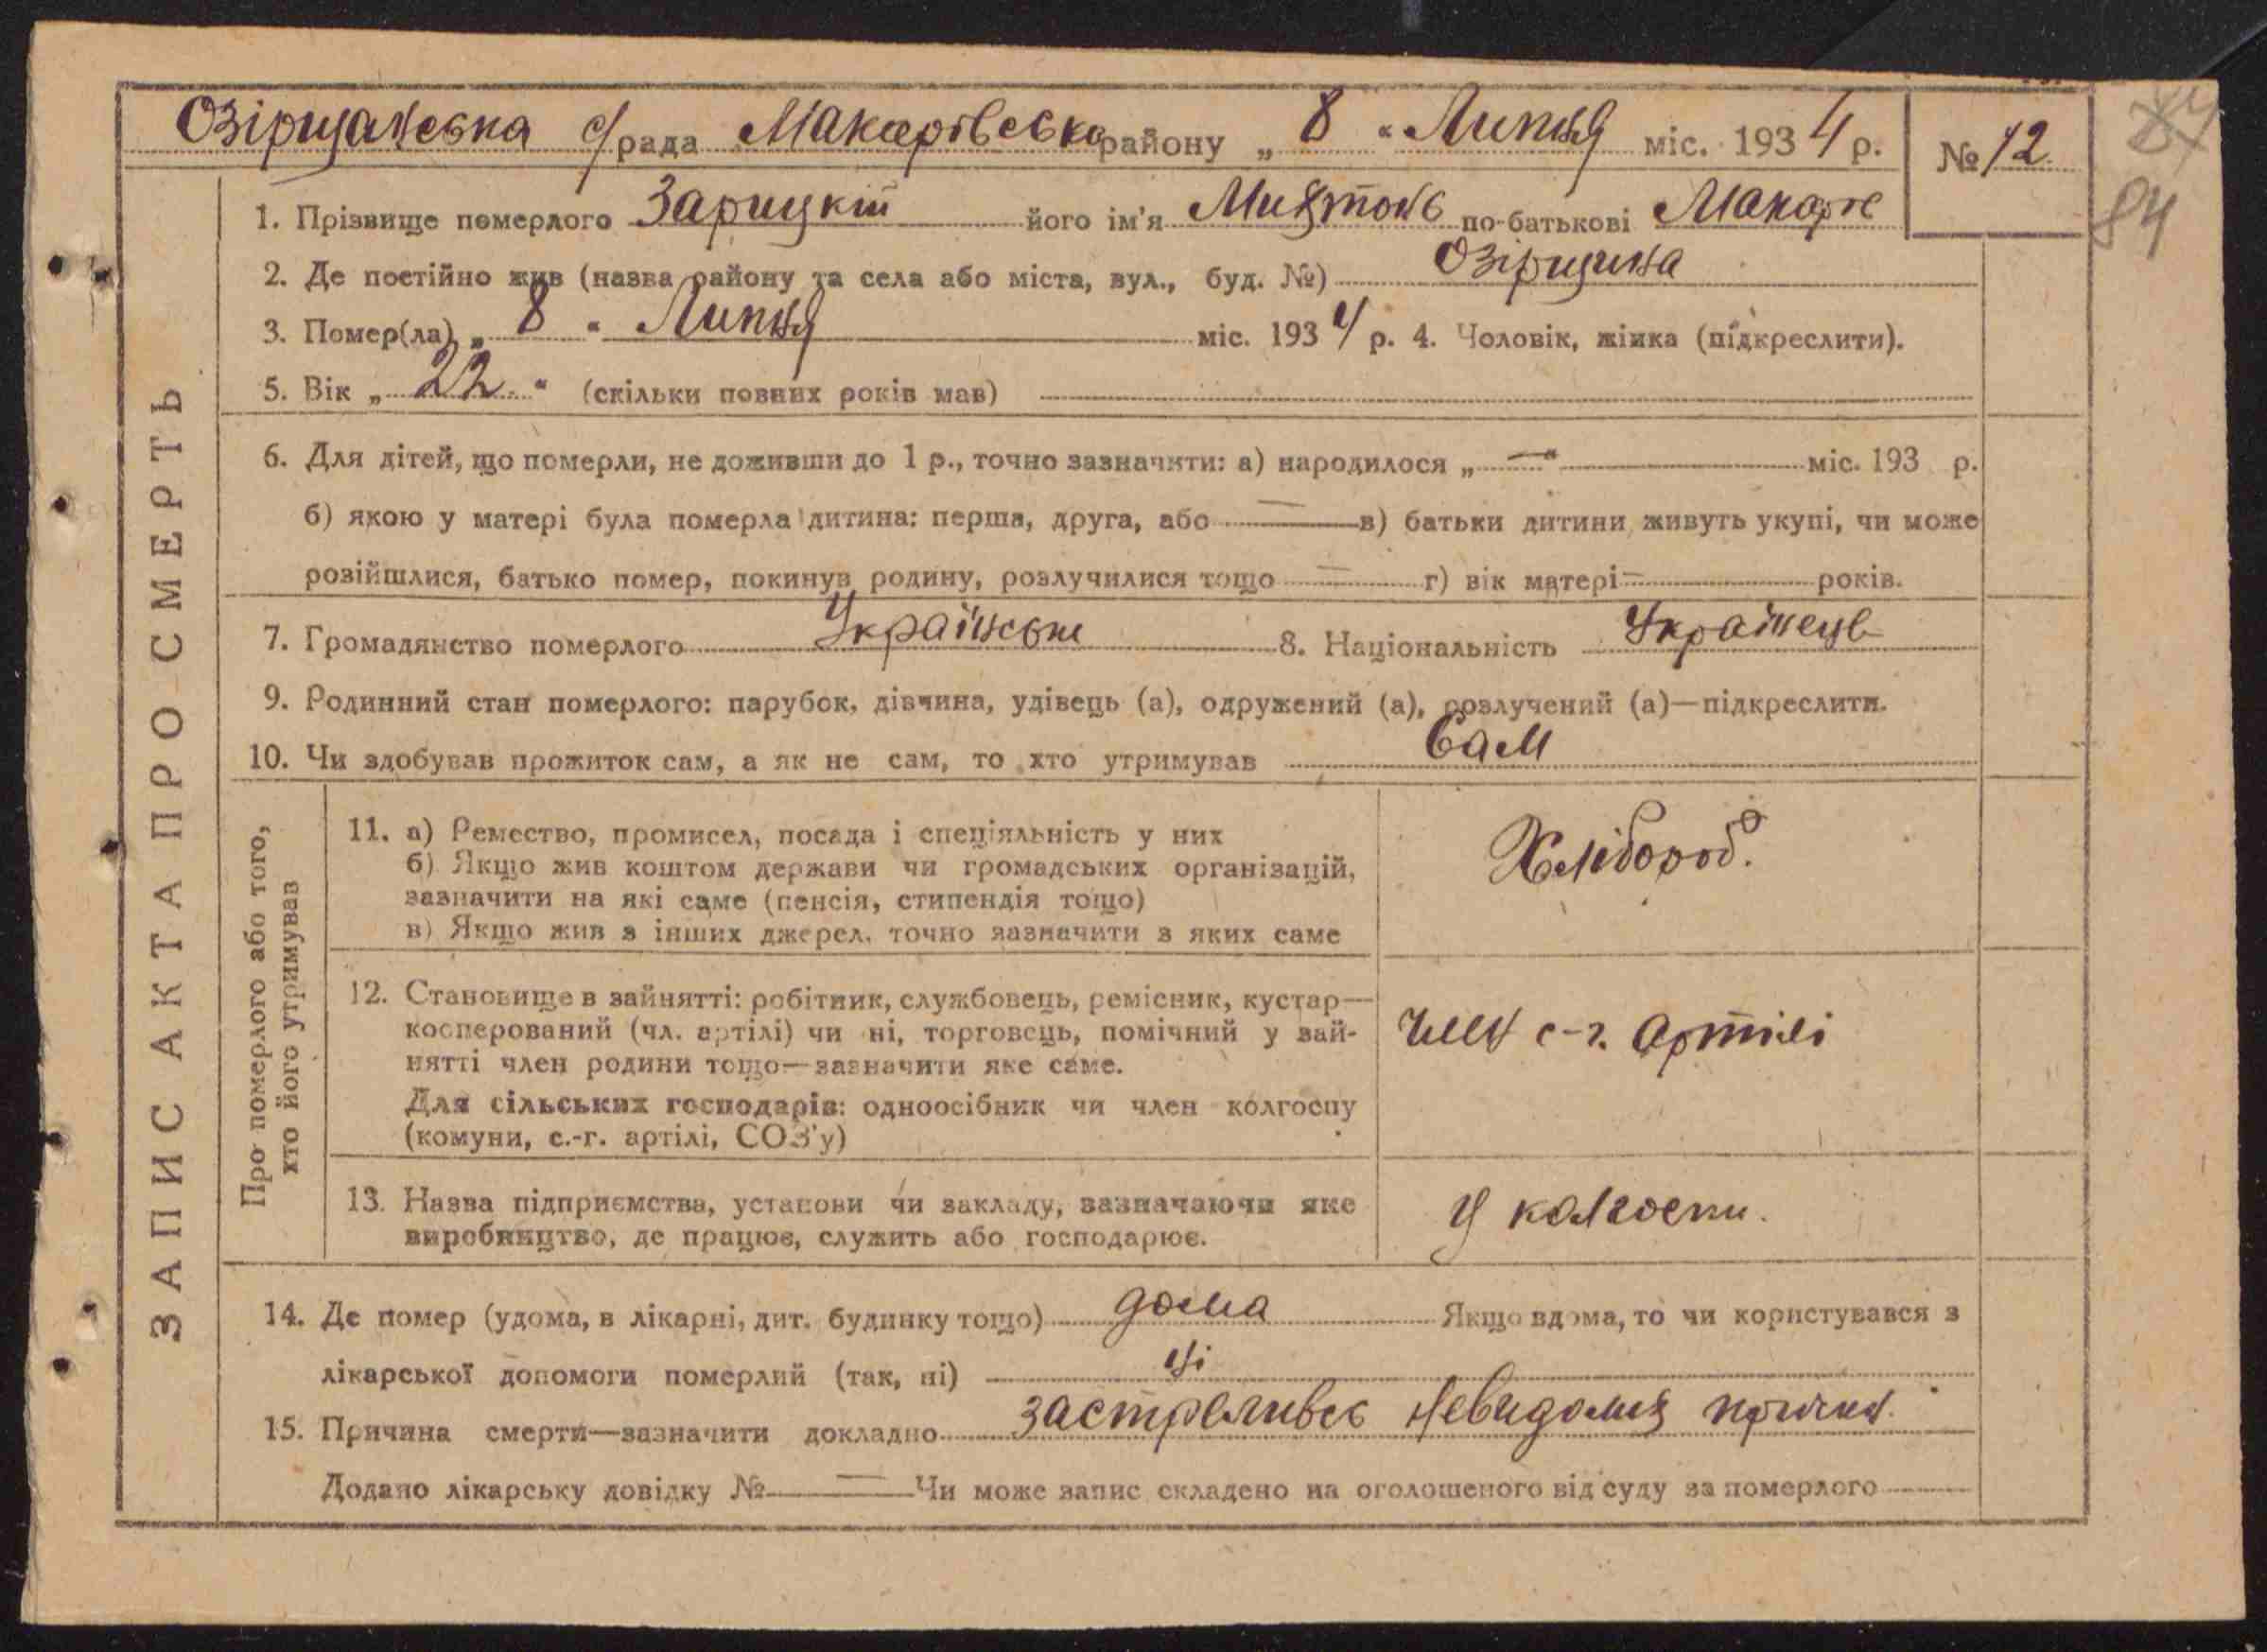 Озірщанська с/рада Макарівська району „ 8 “ Липня міс. 1934 р. № 12.
84
ЗАПИС АКТА ПРО СМЕРТЬ
1. Прізвище померлого Зарицкій його ім'я по-батькові Макаров
2. Де постійно жив (назва району та села або міста, вул., буд. №) Озірщина
3. Помер(ла) „ 8 “ Липня міс. 1934 р. 4. Чоловік, жінка (підкреслити).
5. Вік „ 22. “ (скільки повних років мав)
6. Для дітей, що померли, не доживши до 1 р., точно зазначити: а) народилося „ — “ міс. 193 р.
б) якою у матері була померла дитина: перша, друга, або — в) батьки дитини живуть укупі, чи може
розійшлися, батько помер, покинув родину, розлучилися тощо — г) вік матері — років.
7. Громадянство померлого Українське 8. Національність Українець
9. Родинний стан померлого: парубок, дівчина, удівець (а), одружений (а), розлучений (а)—підкреслити.
10. Чи здобував прожиток сам, а як не сам, то хто утримував Сам
Про померлого або того,
хто його утримував
11. а) Ремество, промисел, посада і спеціяльність у них
б) Якщо жив коштом держави чи громадських організацій,
зазначити на які саме (пенсія, стипендія тощо)
в) Якщо жив з інших джерел, точно зазначити з яких саме
Хлібороб.
12. Становище в зайнятті: робітник, службовець, ремісник, кустар—
косперований (чл. артілі) чи ні, торговець, помічний у зай-
нятті член родини тощо—зазначити яке саме.
Для сільських господарів: одноосібник чи член колгоспу
(комуни, с.-г. артілі, СОЗ'у)
член с-г. артілі
13. Назва підприємства, установи чи закладу, зазначаючи яке
виробництво, де працює, служить або господарює.
У колгоспи.
14. Де помер (удома, в лікарні, дит. будинку тощо) дома Якщо вдома, то чи користувався з
лікарської допомоги померлий (так, ні) ні
15. Причина смерти—зазначити докладно застреливсь невидомих причин.
Додано лікарську довідку № — Чи може запис складено на оголошеного від суду за померлого